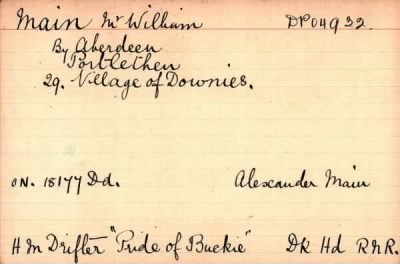 Main Mr William DP04932.
By Aberdeen
Portlethen
29. Village of Downies.
ON. 18177 Dd. Alexander Main
H M Drifter "Pride of Buckie" Dk Hd R.N.R.